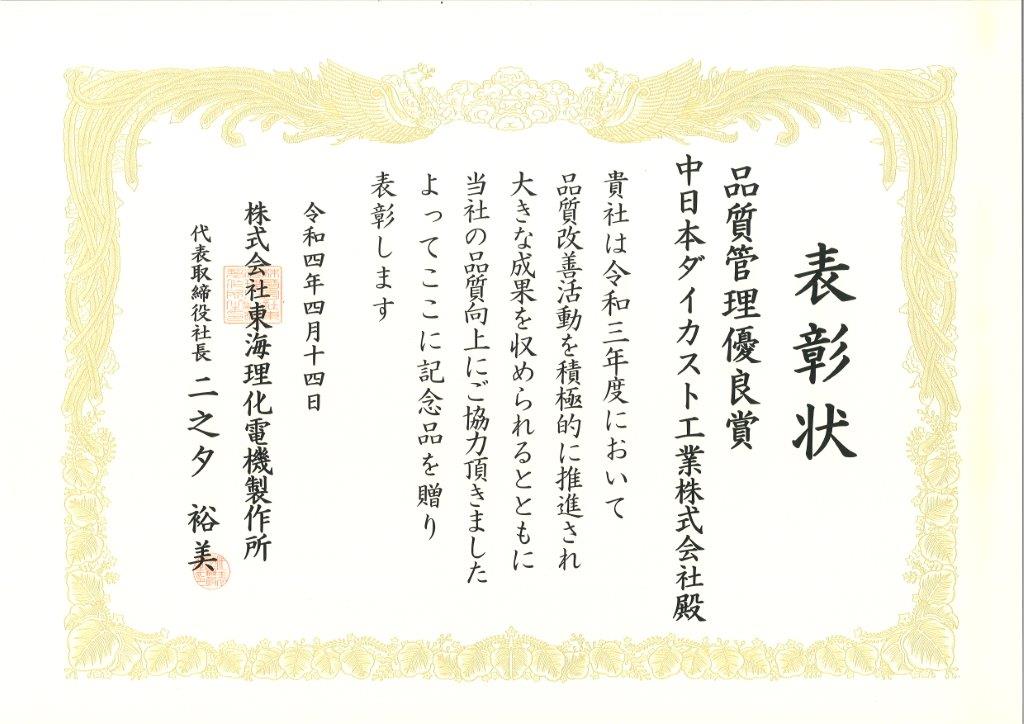 表彰状
品質管理優良賞
中日本ダイカスト工業株式会社殿
貴社は令和三年度において
品質改善活動を積極的に推進され
大きな成果を収められるとともに
当社の品質向上にご協力頂きました
よってここに記念品を贈り
表彰します
令和四年四月十四日
株式会社東海理化電機製作所
代表取締役社長 二之夕 裕美